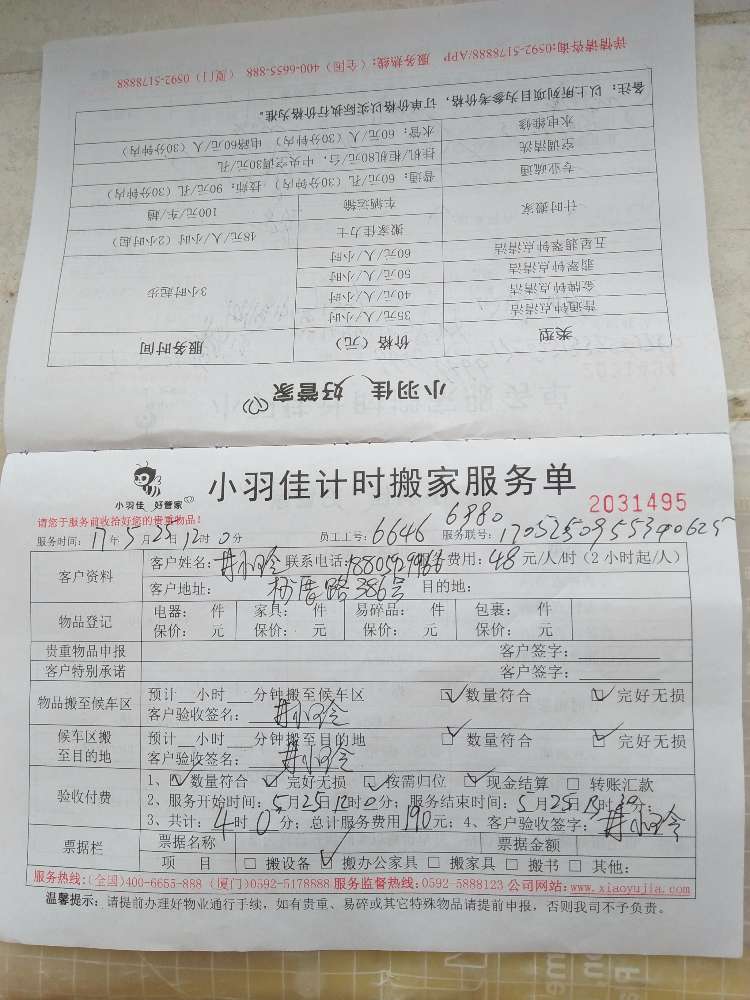 小羽佳 好管家
类型 价格（元） 服务时间
普通钟点清洁 35元/人/小时 3小时起步
金牌钟点清洁 40元/人/小时
翡翠钟点清洁 50元/人/小时
五星翡翠钟点清洁 60元/人/小时
计时搬家 搬家佳力士 48元/人/小时（2小时起）
车辆运输 100元/车/趟
专业疏通 普通：60元/孔（30分钟内） 技师：90元/孔（30分钟内）
空调清洗 挂机柜机80元/台，中央空调30元/孔
水电维修 水管：60元/人（30分钟内） 电路60元/人（30分钟内）
备注：以上所列项目为参考价格，订单价格以实际执行价格为准。
详情请咨询:0592-5178888/APP 服务热线:（全国）400-6655-888 （厦门）0592-5178888
小羽佳 好管家
小羽佳计时搬家服务单
2031495
请您于服务前收拾好您的贵重物品！
服务时间：17年5月25日12时0分 员工工号：6646 6880 服务联号：
客户资料 客户姓名： 联系电话： 费用：48元/人/时（2小时起/人）
客户地址： 路386号 目的地：
物品登记 电器： 件 家具： 件 易碎品： 件 包裹： 件
保价： 元 保价： 元 保价： 元 保价： 元
贵重物品申报 客户签字：
客户特别承诺 客户签字：
物品搬至候车区 预计 小时 分钟搬至候车区 数量符合 完好无损
客户验收签名：
候车区搬至目的地 预计 小时 分钟搬至目的地 数量符合 完好无损
客户验收签名：
验收付费 1、数量符合 完好无损 按需归位 现金结算 转账汇款
2、服务开始时间：5月25日12时0分；服务结束时间：5月25日 时 分；
3、共计：4时0分；总计服务费用190元；4、客户验收签字：
票据栏 票据名称 票据金额
项 目 搬设备 搬办公家具 搬家具 搬书 其他:
服务热线:(全国)400-6655-888 (厦门)0592-5178888 服务监督热线:0592-5888123 公司网站:www.xiaoyujia.com
温馨提示：请提前办理好物业通行手续，如有贵重、易碎或其它特殊物品请提前申报，否则我司不予负责。